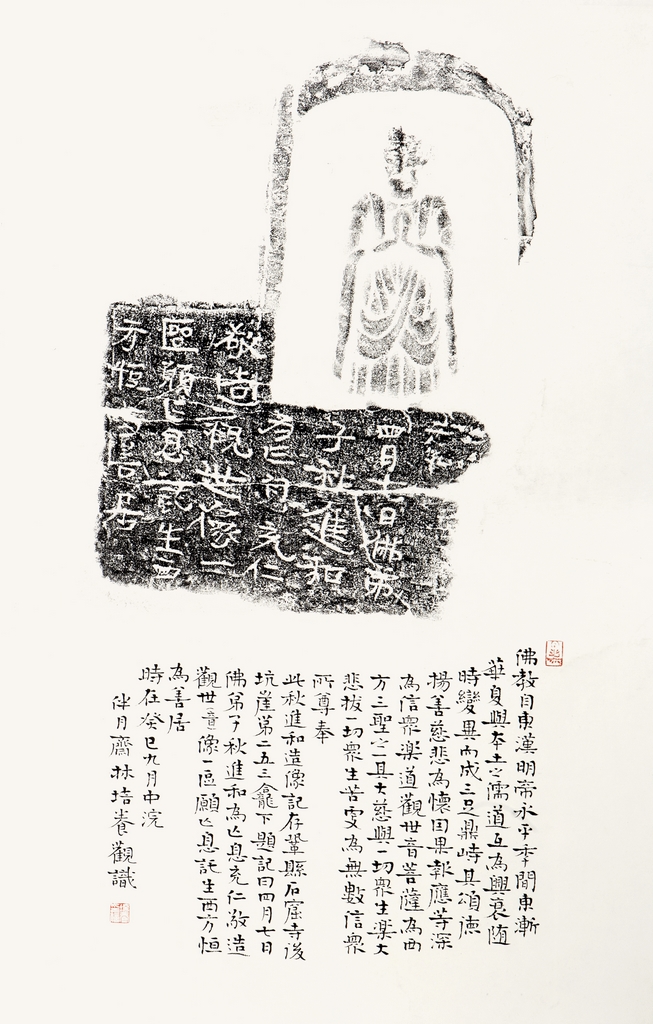 四月七日佛弟
子秋進和
為亡息充仁
敬造觀世像一
區願亡息託生西
方恒為善居
佛教自東漢明帝永平年間東漸
華夏與本土之儒道互為興衰随
時變異而成三足鼎峙其頌德
揚善慈悲為懷因果報應等深
為信衆楽道觀世音菩薩為西
方三聖之一具大慈與一切衆生楽大
悲拔一切衆生苦受為無數信衆
所尊奉
此秋進和造像記存鞏縣石窟寺後
坑崖第二五三龕下題記曰四月七日
佛弟子秋進和為亡息充仁敬造
觀世音像一區願亡息託生西方恒
為善居
時在癸巳九月中浣
伴月齋林培養觀識